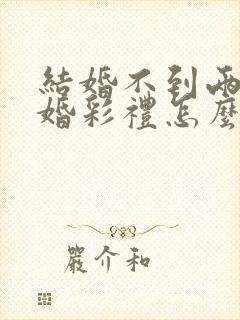 結婚不到兩
婚彩禮怎麼
嚴介和